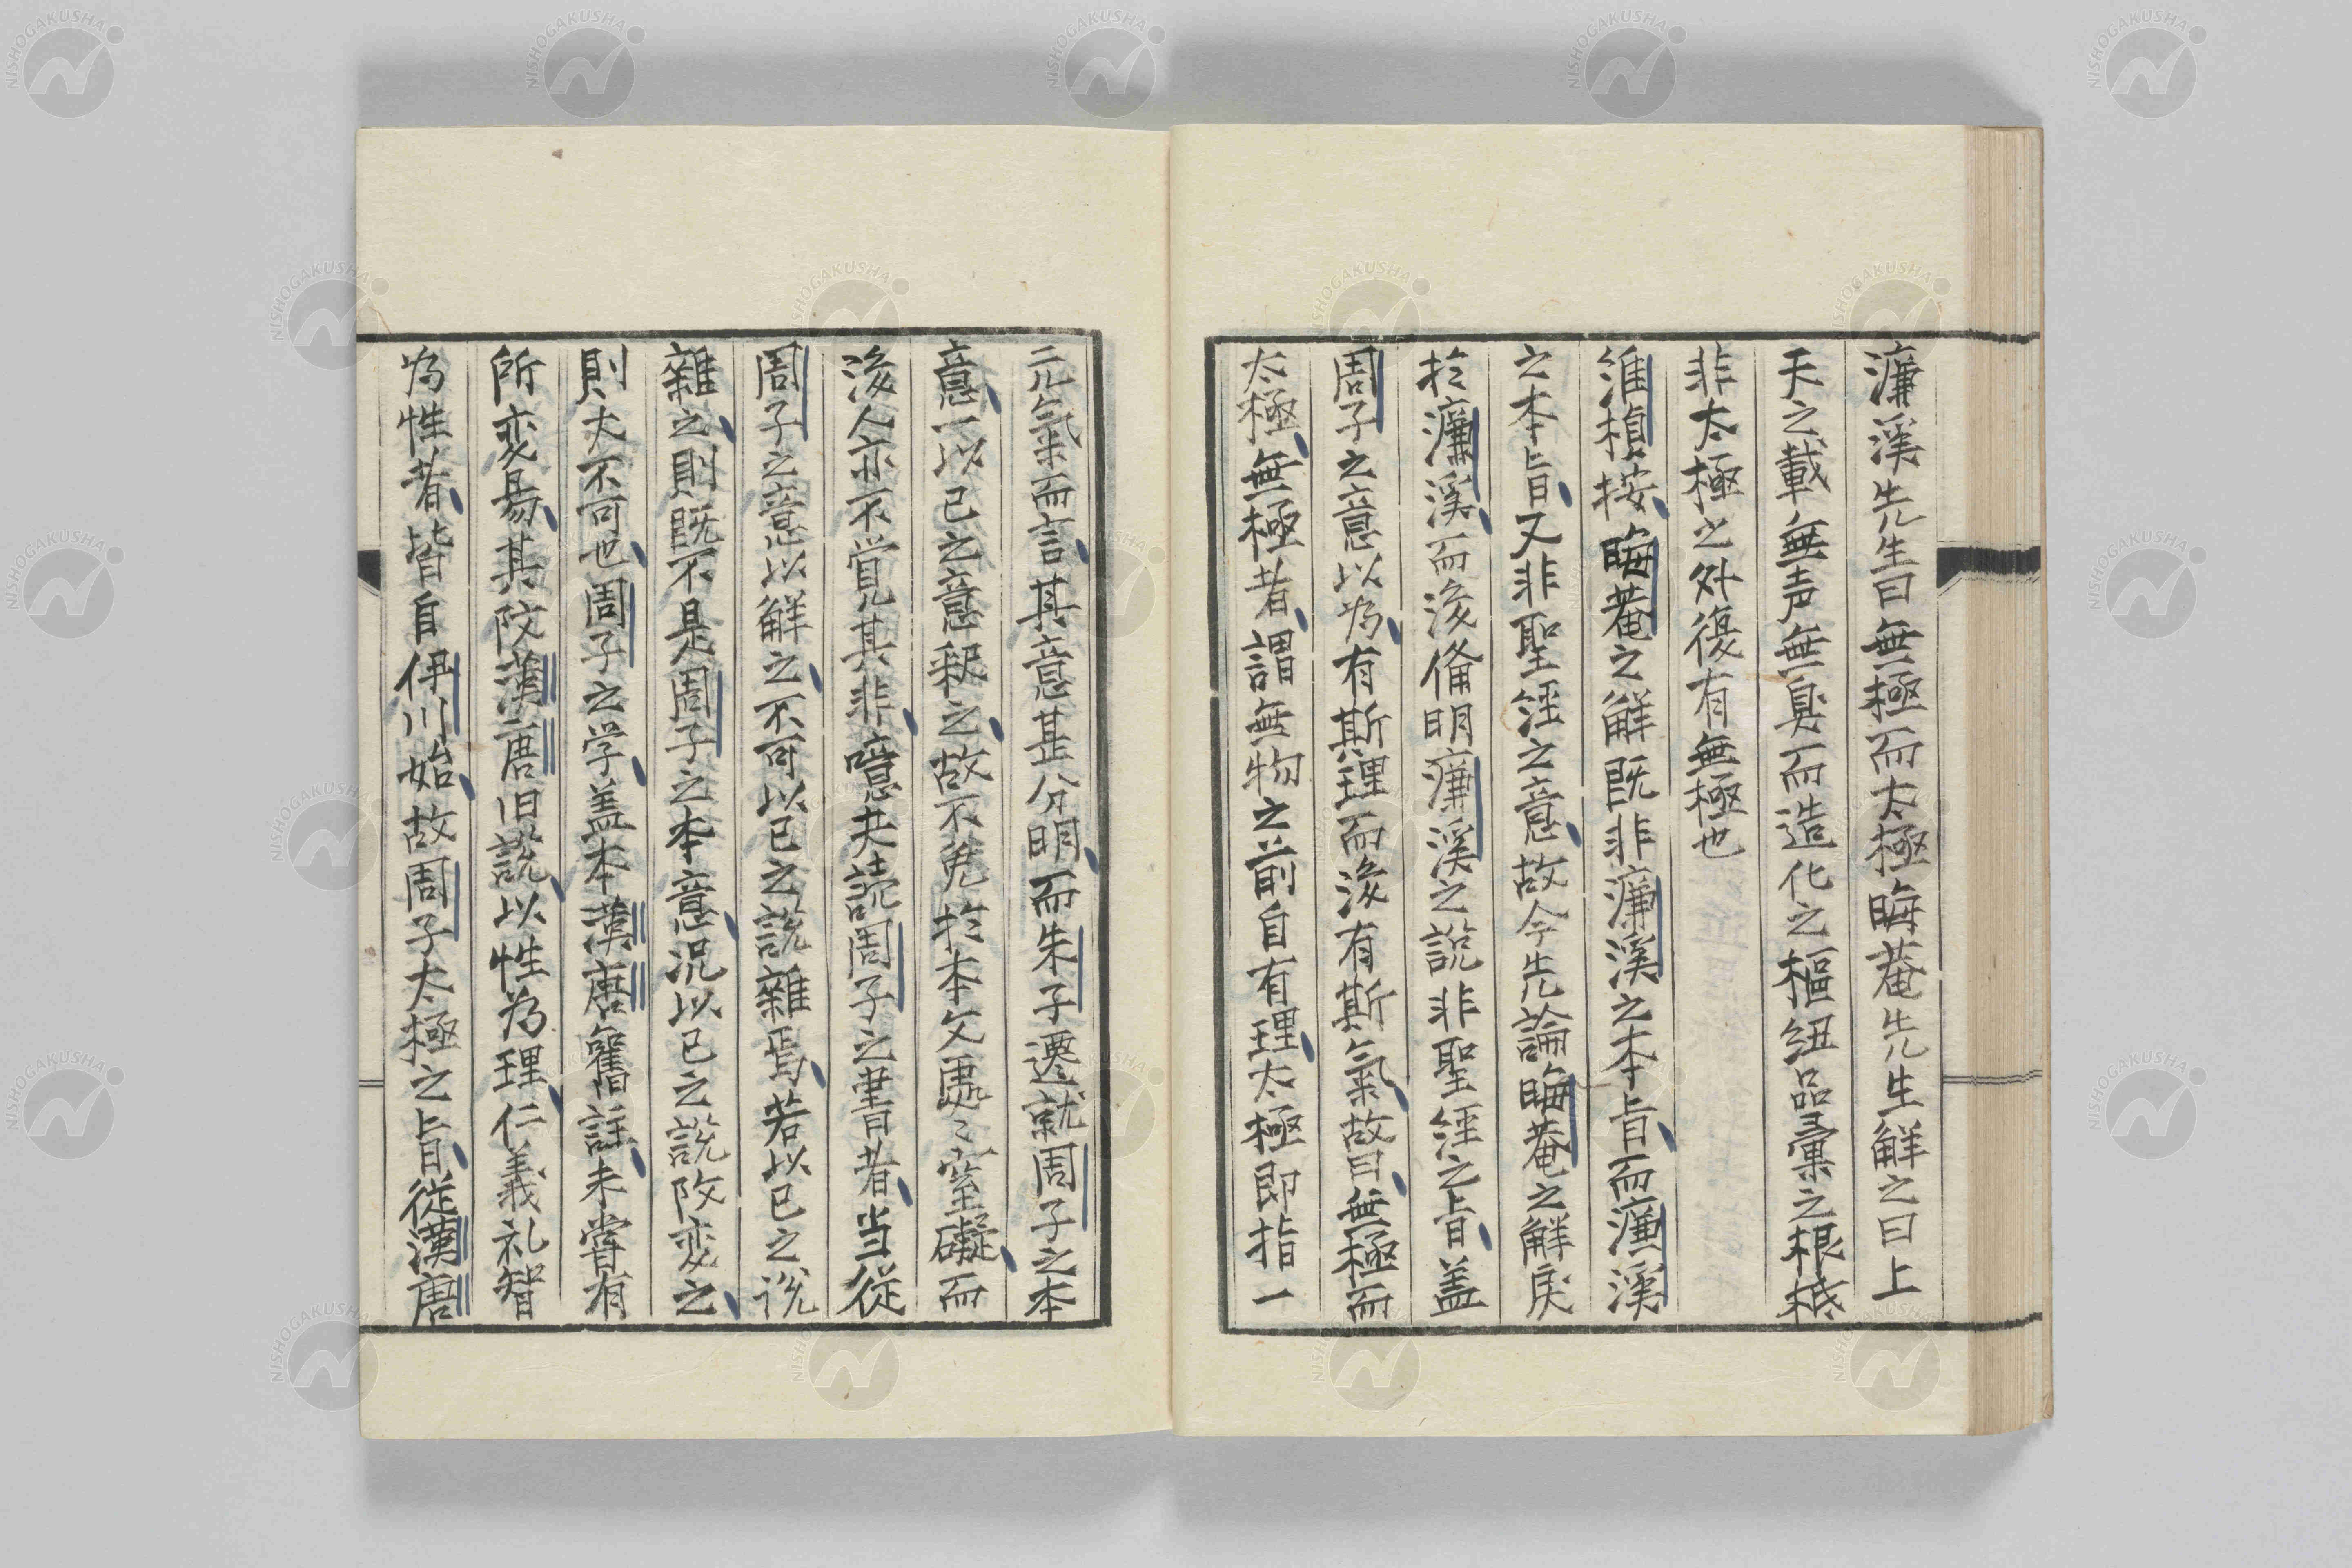 濂溪先生曰無極而太極晦菴先生解之曰上
天之載無声無臭而造化之樞紐品彙之根柢
非太極之外復有無極也
維楨按晦菴之解既非濂溪之本旨而濂溪
之本旨又非聖経之意故今先論晦菴之解戾
於濂溪而後備明濂溪之說非聖経之旨盖
周子之意以為有斯理而後有斯氣故曰無極而
太極無極者謂無物之前自有理太極即指一
元氣而言其意甚分明而朱子遷就周子之本
意一以己之意釈之故不免於本文處々窒礙而
後人亦不覚其非噫夫読周子之書者当従
周子之意以解之不可以己之說雜焉若以己之說
雜之則既不是周子之本意況以己之說改変之
則大不可也周子之学盖本漢唐舊註未嘗有
所変易其改漢唐旧說以性為理仁義礼智
為性者皆自伊川始故周子太極之旨従漢唐